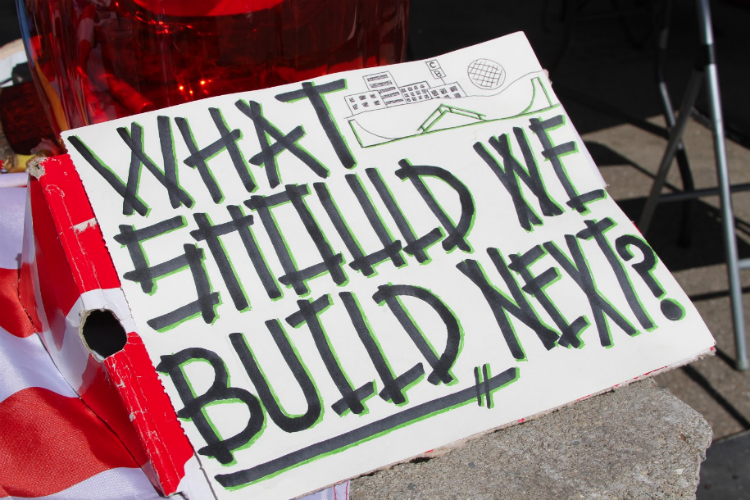 WHAT
SHOULD WE
BUILD NEXT?